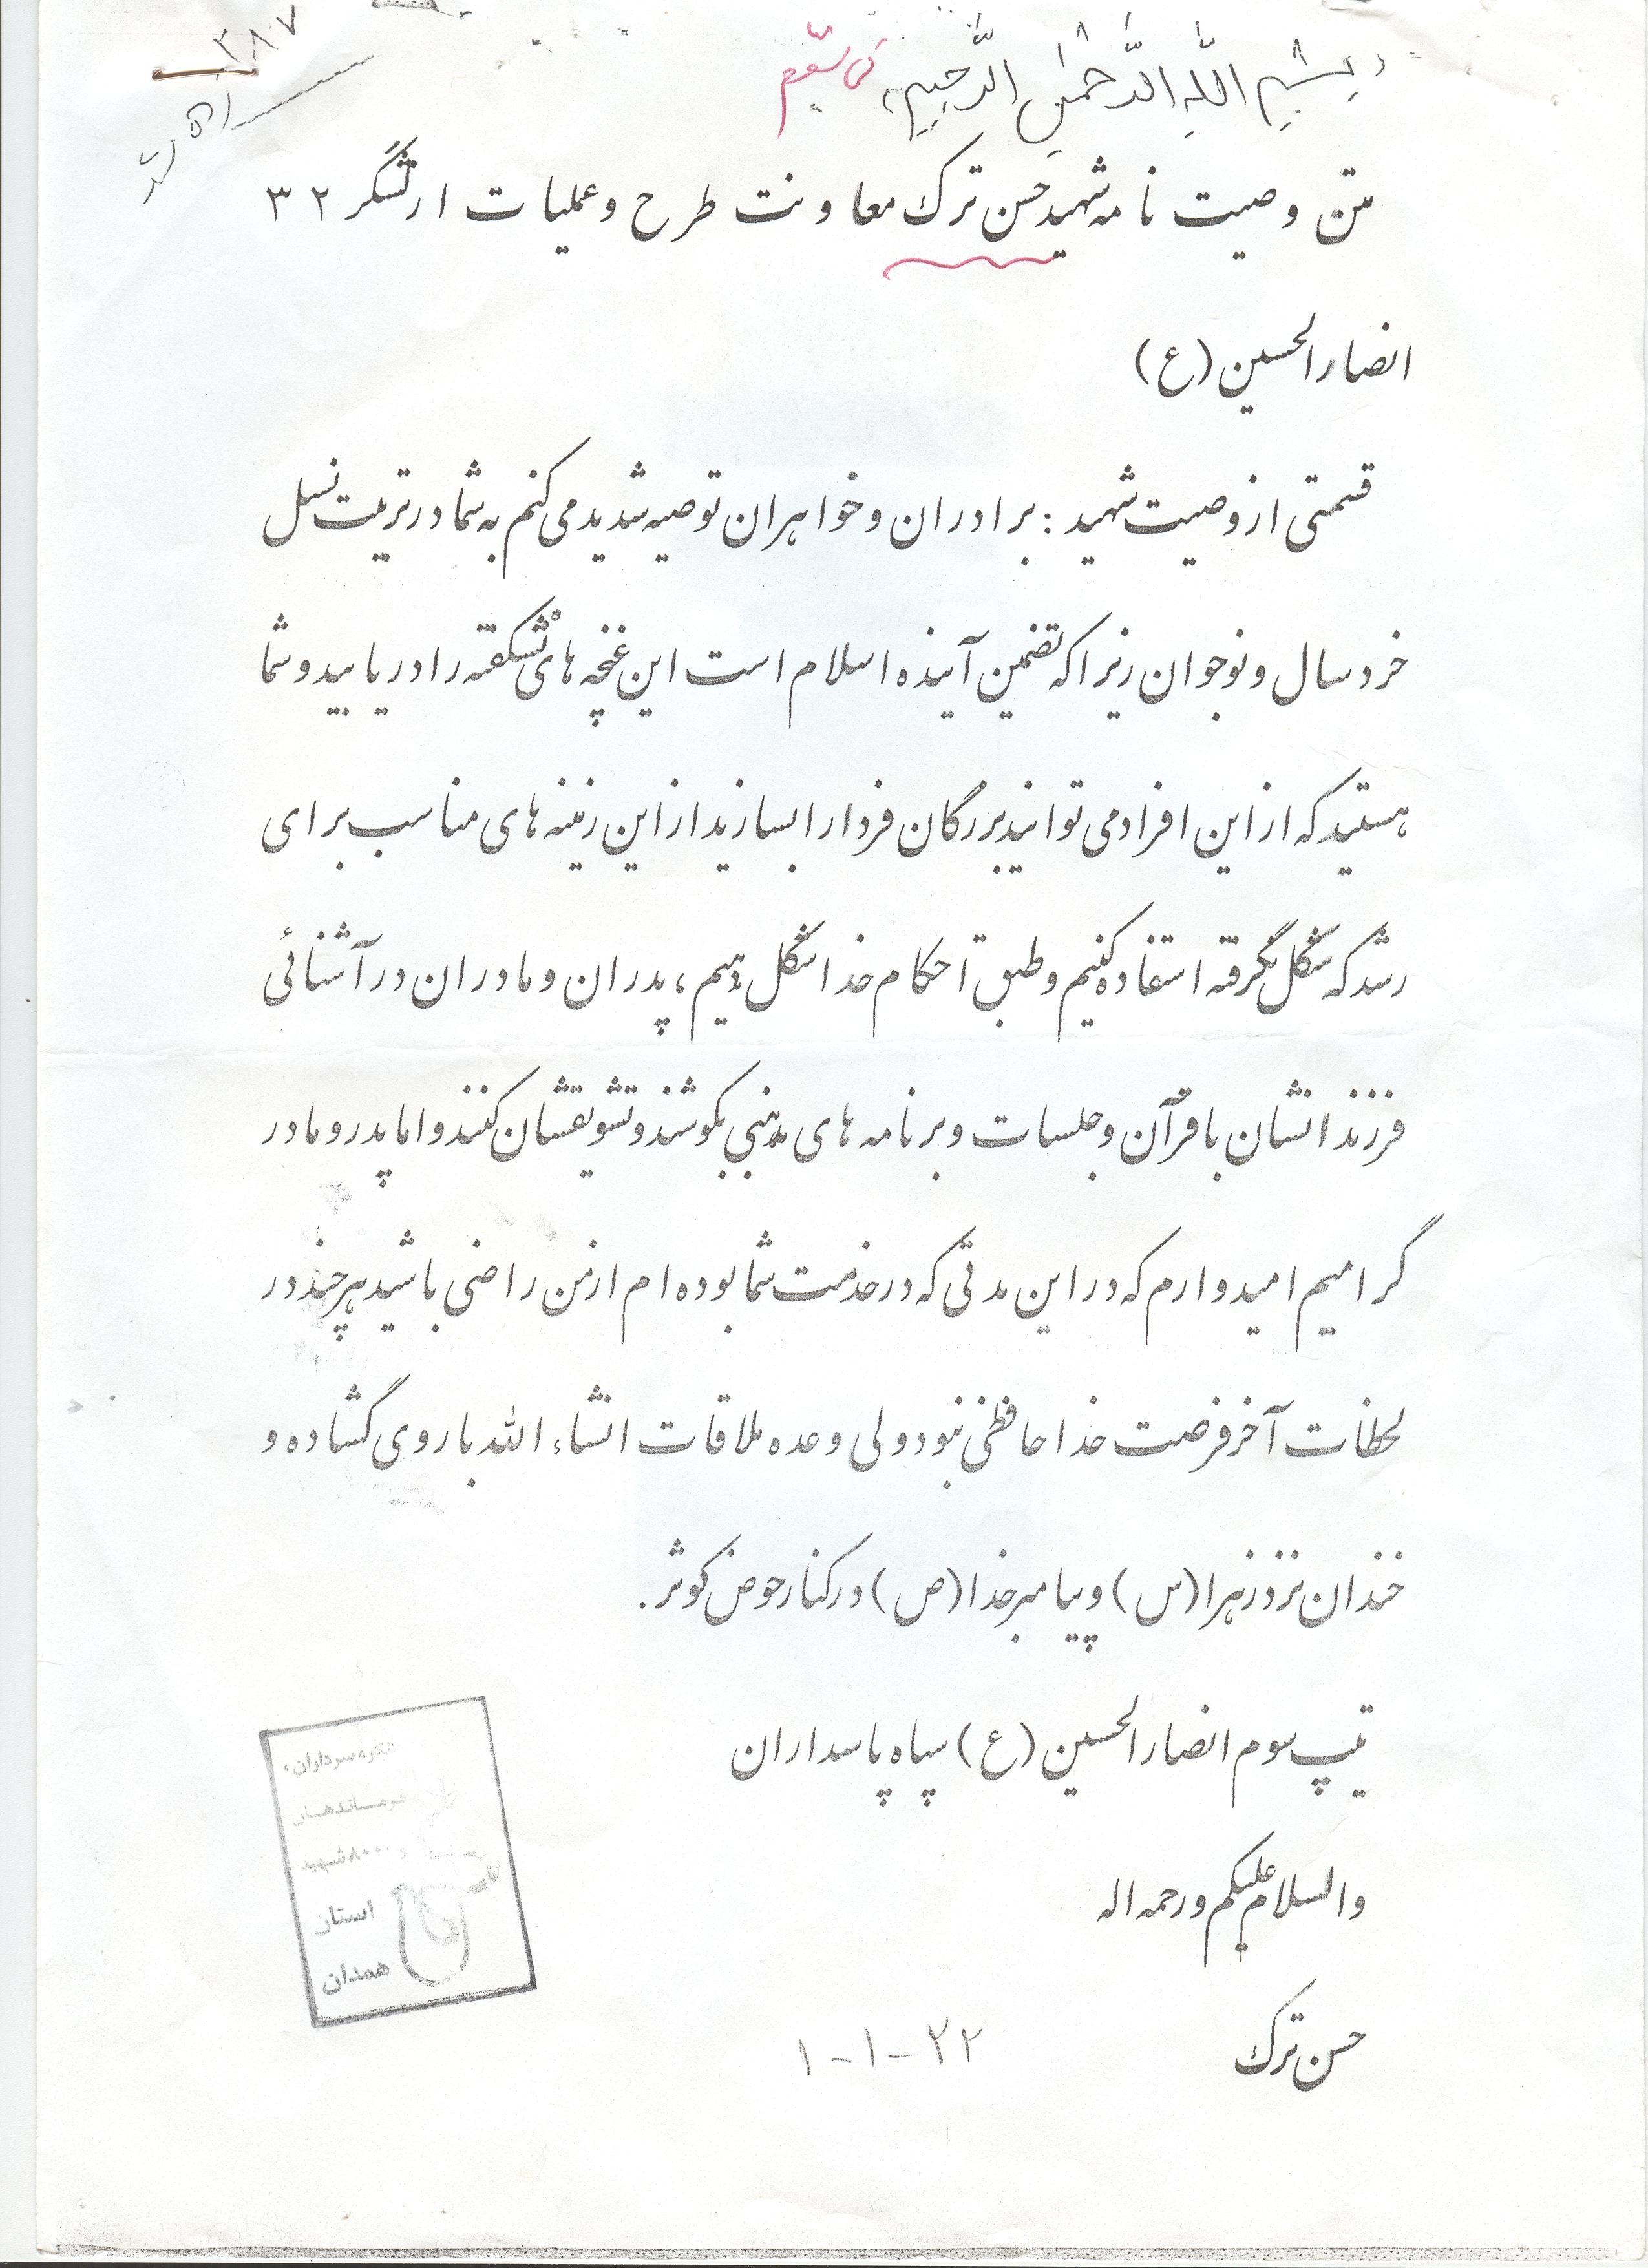 بِسْمِ اللَّهِ الرَّحْمٰنِ الرَّحِيمِ
۳۸۷
متن وصیت نامه شهید حسن ترک معاونت طرح و عملیات ارتشگر ۳۲
انصار الحسین (ع)
قسمتی از وصیت شهید : برادران و خواهران توصیه شدید می کنم به شما در تربیت نسل
خردسال و نوجوان زیرا که تضمین آینده اسلام است این غنچه های نشکفته را دریابید و شما
هستید که از این افراد می توانید بزرگان فردا را بسازید از این زمینه های مناسب برای
رشد که شکل نگرفته استفاده کنیم و طبق احکام خدا شکل دهیم ، پدران و مادران در آشنائی
فرزندانشان با قرآن و جلسات و برنامه های مذهبی بکوشند و تشویقشان کنند و اما پدر و مادر
گرامیم امیدوارم که در این مدتی که در خدمت شما بوده ام از من راضی باشید هر چند در
لحظات آخر فرصت خداحافظی نبود ولی وعده ملاقات انشاء الله با روی گشاده و
خندان نزد زهرا (س) و پیامبر خدا (ص) در کنار حوض کوثر .
تیپ سوم انصار الحسین (ع) سپاه پاسداران
والسلام علیکم و رحمه اله
حسن ترک ۲۲-۱-۱
کنگره سرداران
فرماندهان
و ۸۰۰۰ شهید
استان
همدان